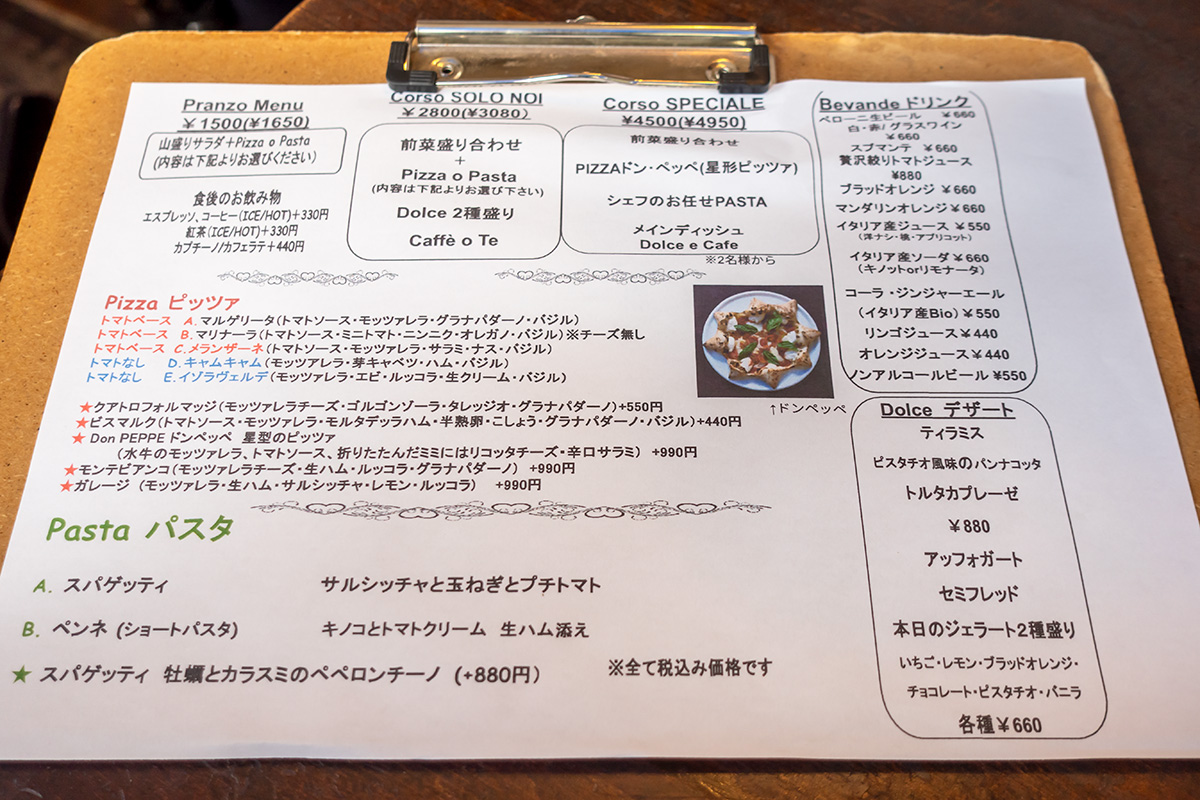 Pranzo Menu
￥1500(¥1650)
山盛りサラダ+Pizza o Pasta
(内容は下記よりお選びください)
食後のお飲み物
エスプレッソ、コーヒー(ICE/HOT)+330円
紅茶(ICE/HOT)+330円
カプチーノ/カフェラテ+440円
Corso SOLO NOI
￥2800(¥3080)
前菜盛り合わせ
+
Pizza o Pasta
(内容は下記よりお選び下さい)
Dolce 2種盛り
Caffè o Te
Corso SPECIALE
¥4500(¥4950)
前菜盛り合わせ
PIZZAドン・ペッペ(星形ピッツァ)
シェフのお任せPASTA
メインディッシュ
Dolce e Cafe
※2名様から
Bevande ドリンク
ペローニ生ビール ￥660
白・赤/グラスワイン
￥660
スプマンテ ￥660
贅沢絞りトマトジュース
¥880
ブラッドオレンジ ￥660
マンダリンオレンジ￥660
イタリア産ジュース ￥550
(洋ナシ・桃・アプリコット)
イタリア産ソーダ￥660
(キノットorリモナータ)
コーラ・ジンジャーエール
(イタリア産Bio)￥550
リンゴジュース￥440
オレンジジュース￥440
ノンアルコールビール ¥550
Pizza ピッツァ
トマトベース A.マルゲリータ(トマトソース・モッツァレラ・グラナパダーノ・バジル)
トマトベース B.マリナーラ(トマトソース・ミニトマト・ニンニク・オレガノ・バジル)※チーズ無し
トマトベース C.メランザーネ(トマトソース・モッツァレラ・サラミ・ナス・バジル)
トマトなし D.キャムキャム(モッツアレラ・芽キャベツ・ハム・バジル)
トマトなし E.イゾラヴェルデ(モッツァレラ・エビ・ルッコラ・生クリーム・バジル)
↑ドンペッペ
★クアトロフォルマッジ(モッツァレラチーズ・ゴルゴンゾーラ・タレッジオ・グラナパダーノ)+550円
★ビスマルク(トマトソース・モッツァレラ・モルタデッラハム・半熟卵・こしょう・グラナパダーノ・バジル)+440円
★ Don PEPPE ドンペッペ 星型のピッツァ
(水牛のモッツァレラ、トマトソース、折りたたんだミミにはリコッタチーズ・辛口サラミ) +990円
★モンテビアンコ(モッツァレラチーズ・生ハム・ルッコラ・グラナパダーノ) +990円
★ガレージ (モッツァレラ・生ハム・サルシッチャ・レモン・ルッコラ) +990円
Pasta パスタ
A. スパゲッティ サルシッチャと玉ねぎとプチトマト
B. ペンネ (ショートパスタ) キノコとトマトクリーム 生ハム添え
★ スパゲッティ 牡蠣とカラスミのペペロンチーノ (+880円)
※全て税込み価格です
Dolce デザート
ティラミス
ピスタチオ風味のパンナコッタ
トルタカプレーゼ
￥880
アッフォガート
セミフレッド
本日のジェラート2種盛り
いちご・レモン・ブラッドオレンジ・
チョコレート・ピスタチオ・バニラ
各種￥660